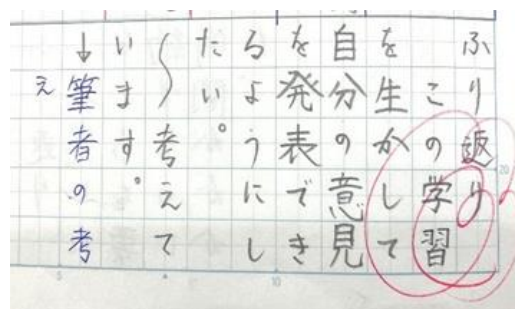 ふり返り
この学習
を生かして
自分の意見
を発表でき
るようにし
たい。
〜考えて
います。
↓筆者の考
え